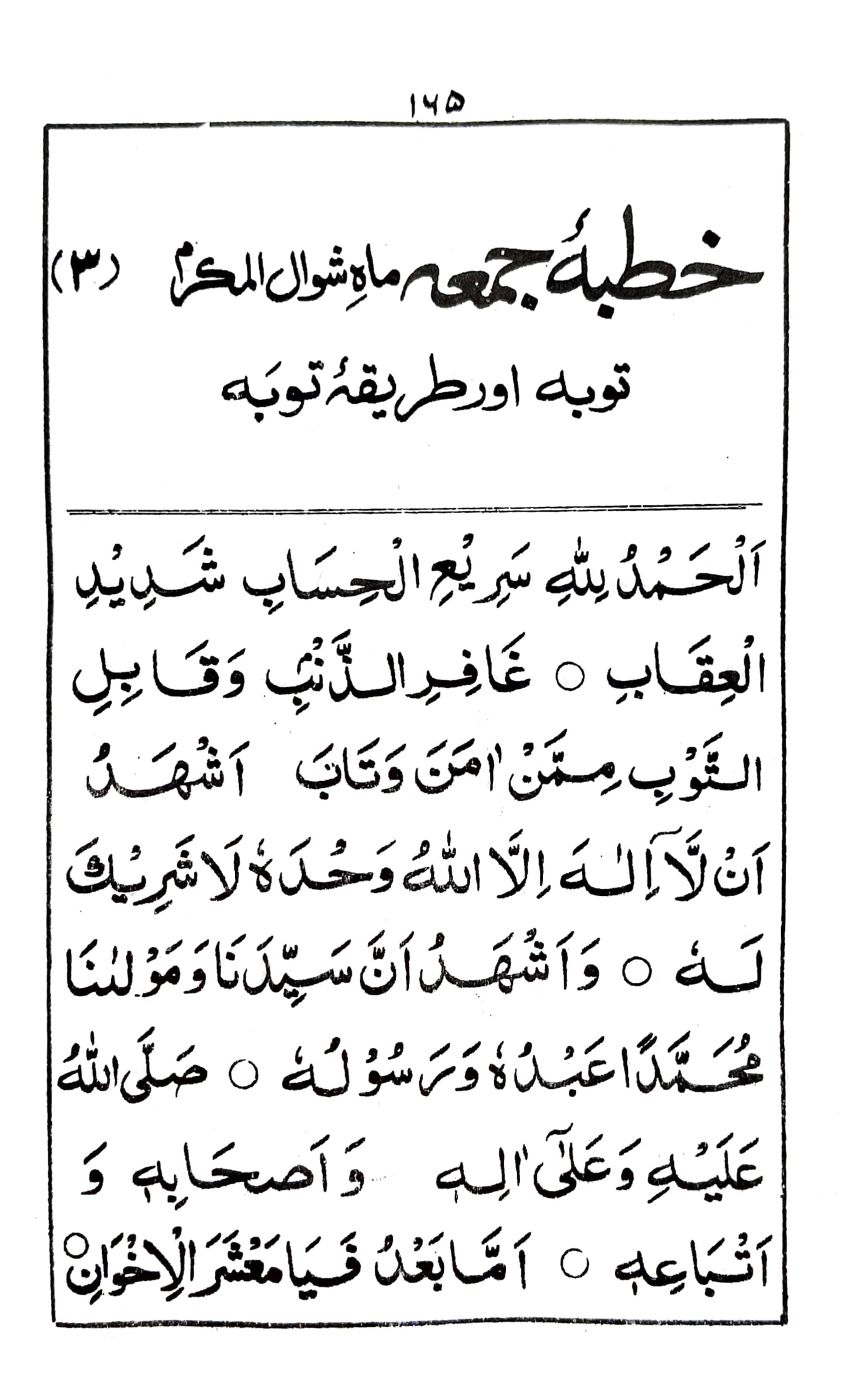 ۱۶۵
خطبۂ جمعہ ماہِ شوال المکرم (۳)
توبہ اور طریقۂ توبَہ
اَلْحَمْدُ لِلّٰهِ سَرِيْعِ الْحِسَابِ شَدِيْدِ
الْعِقَابِ ○ غَافِرِ الذَّنْۢبِ وَقَابِلِ
التَّوْبِ مِمَّنْ اٰمَنَ وَتَابَ اَشْهَدُ
اَنْ لَّآ اِلٰهَ اِلَّا اللّٰهُ وَحْدَهٗ لَا شَرِيْكَ
لَهٗ ○ وَاَشْهَدُ اَنَّ سَيِّدَنَا وَمَوْلٰنَا
مُحَمَّدًا عَبْدُهٗ وَرَسُوْلُهٗ ○ صَلَّى اللّٰهُ
عَلَيْهِ وَعَلٰٓى اٰلِهٖ وَاَصْحَابِهٖ وَ
اَتْبَاعِهٖ ○ اَمَّا بَعْدُ فَيَا مَعْشَرَ الْاِخْوَانِ ○